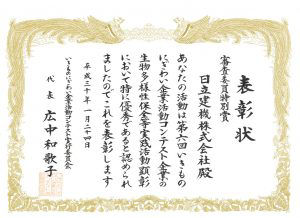 表彰状
審査委員特別賞
日立建機株式会社殿
あなたの活動は第六回いきもの
にぎわい企業活動コンテスト企業の
生物多様性保全等実践活動顕彰
において特に優秀であると認められ
ましたのでこれを表彰します
平成三十年一月二十四日
いきものにぎわい企業活動コンテスト実行委員会
代表 広中和歌子